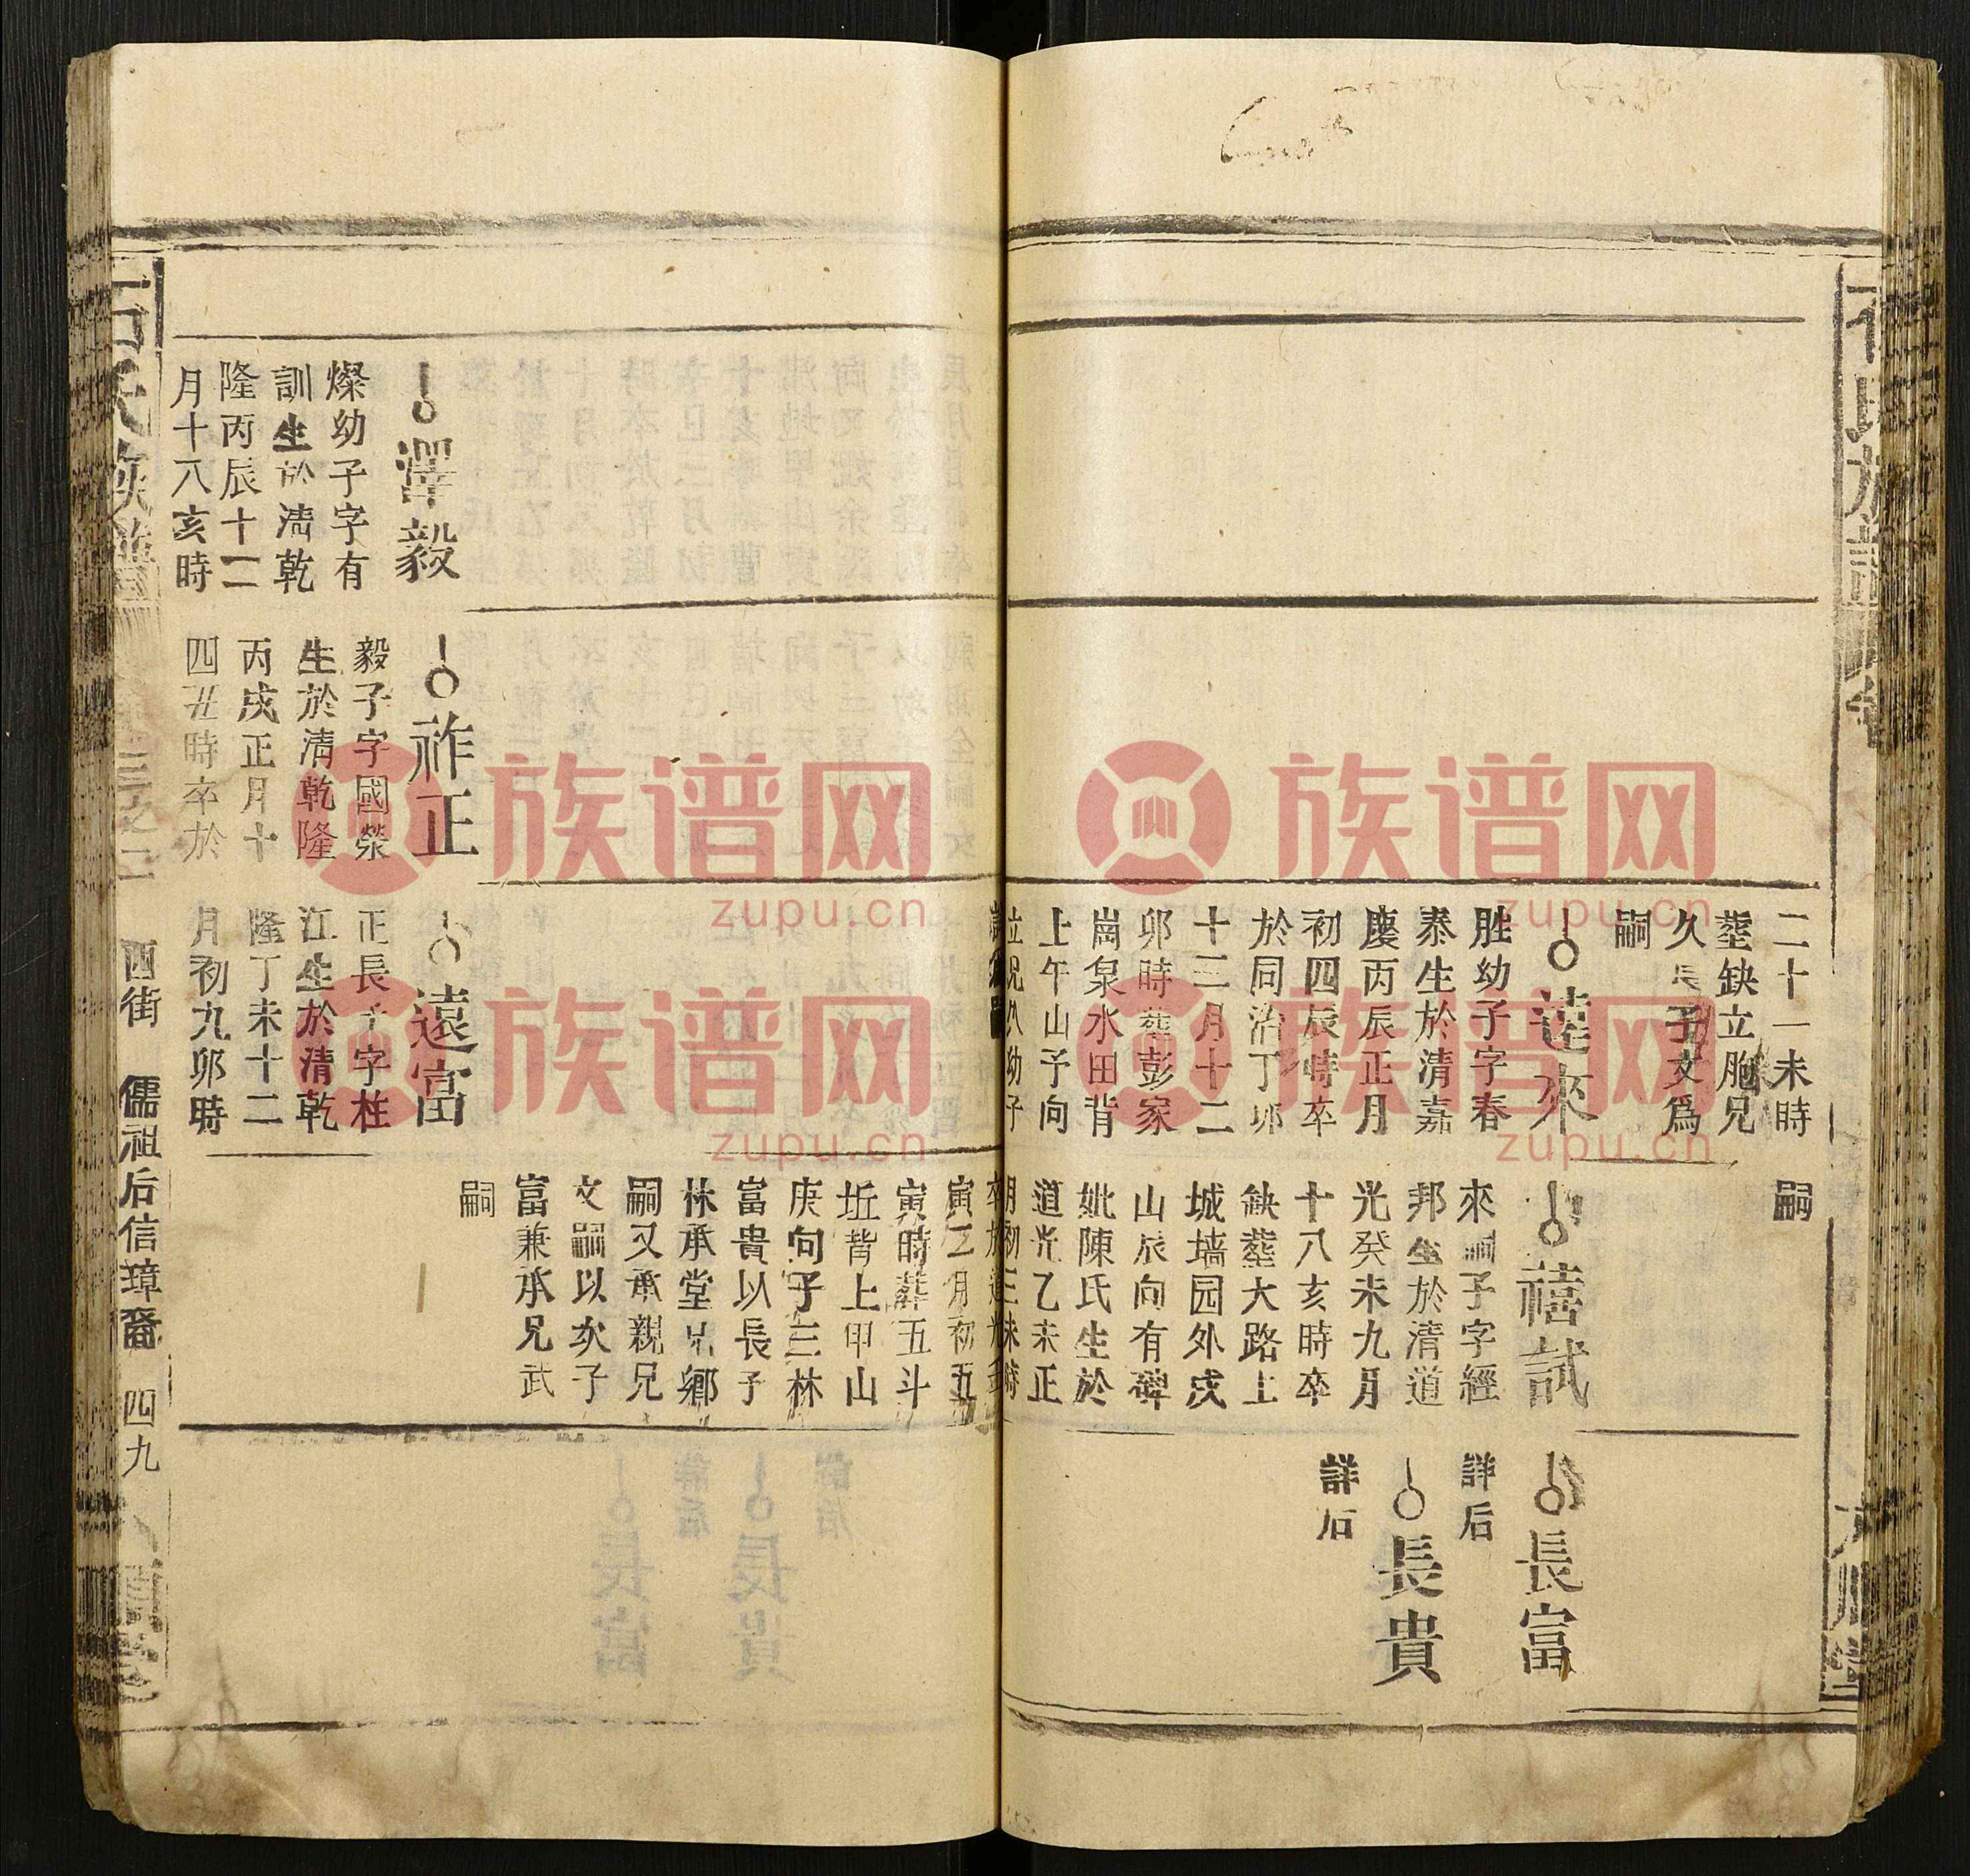 二十一未時
塟缺立胞兄
久長子文爲
嗣
達來
胜幼子字春
泰生於清嘉
慶丙辰正月
初四辰時卒
於同治丁卯
十二月十二
卯時葬彭家
崗泉水田背
上午山予向
嗣
禧試
來嗣子字經
邦生於清道
光癸未九月
十八亥時卒
缺塟大路上
城墙园外戌
山辰向有碑
妣陳氏生於
道光乙未正
月初三未時
長富
詳后
長貴
詳后
澤毅
燦幼子字有
訓生於清乾
隆丙辰十二
月十八亥時
祚正
毅子字國榮
生於清乾隆
丙戌正月十
四丑時卒於
寅二月初五
寅時葬五斗
坵背上甲山
庚向子三林
富貴以長子
林承堂兄鄉
嗣又承親兄
文嗣以次子
富兼承兄武
嗣
遠富
正長子字柱
江生於清乾
隆丁未十二
月初九卯時
石氏族譜
西街 儒祖后信璋裔 四九
族谱网
zupu.cn
族谱网
zupu.cn
族谱网
zupu.cn
族谱网
zupu.cn